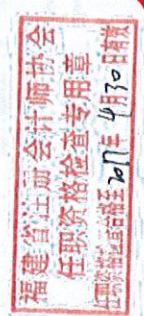 福建省注册会计师协会
任职资格检查专用章
任职资格检查合格至2011年4月30日有效